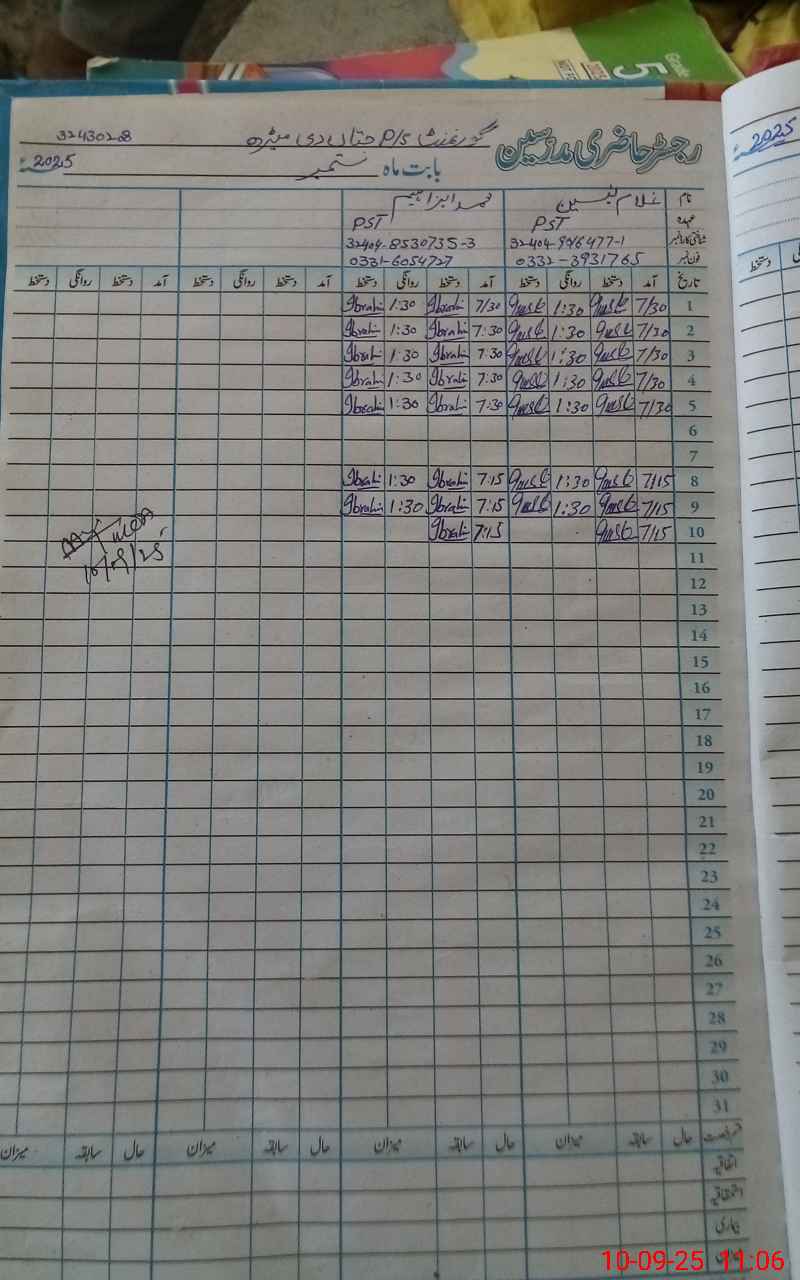 Grade 5
32430208 گورنمنٹ P/S جتاں دی میڑہ رجسٹر حاضری مدرسین
2025 بابت ماہ ستمبر
2025
نام غلام یٰسین محمد ابراہیم
عہدہ PST PST
شناختی کارڈ نمبر 32404-8530735-3
فون نمبر 0332-3931765 0331-6054727
تاریخ آمد دستخط روانگی دستخط آمد دستخط روانگی دستخط آمد دستخط روانگی دستخط آمد دستخط روانگی دستخط
1 7/30 1:30 7/30 Ibrahim 1:30 Ibrahim
2 7/30 1:30 7:30 Ibrahim 1:30 Ibrahim
3 7/30 1:30 7:30 Ibrahim 1:30 Ibrahim
4 7/30 1:30 7:30 Ibrahim 1:30 Ibrahim
5 7/30 1:30 7:30 Ibrahim 1:30 Ibrahim
6
7
8 7/15 1:30 7:15 Ibrahim 1:30 Ibrahim
9 7/15 1:30 7:15 Ibrahim 1:30 Ibrahim
10 7/15 7:15 Ibrahim
10/09/25
11
12
13
14
15
16
17
18
19
20
21
22
23
24
25
26
27
28
29
30
31
حال سابقہ میزان حال سابقہ میزان حال سابقہ میزان حال سابقہ میزان
اتفاقیہ
استحقاقیہ
بیماری
10-09-25 11:06